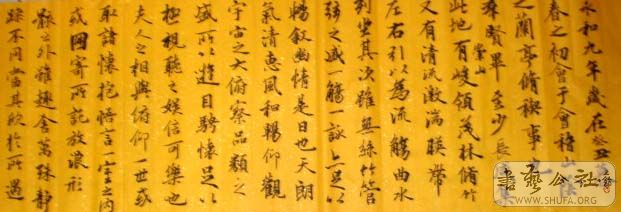 永和九年歲在癸丑
春之初會于會稽山陰
之蘭亭脩禊事也
群賢畢至少長咸集
崇山
此地有峻領茂林脩竹
又有清流激湍暎帶
左右引以為流觴曲水
列坐其次雖無絲竹管
弦之盛一觴一詠亦足以
暢敘幽情是日也天朗
氣清惠風和暢仰觀
宇宙之大俯察品類之
盛所以遊目騁懷足以
極視聽之娛信可樂也
夫人之相與俯仰一世或
取諸懷抱悟言一室之內
或因寄所託放浪形
骸之外雖趣舍萬殊靜
躁不同當其欣於所遇
書藝公社
WWW.SHUFA.ORG